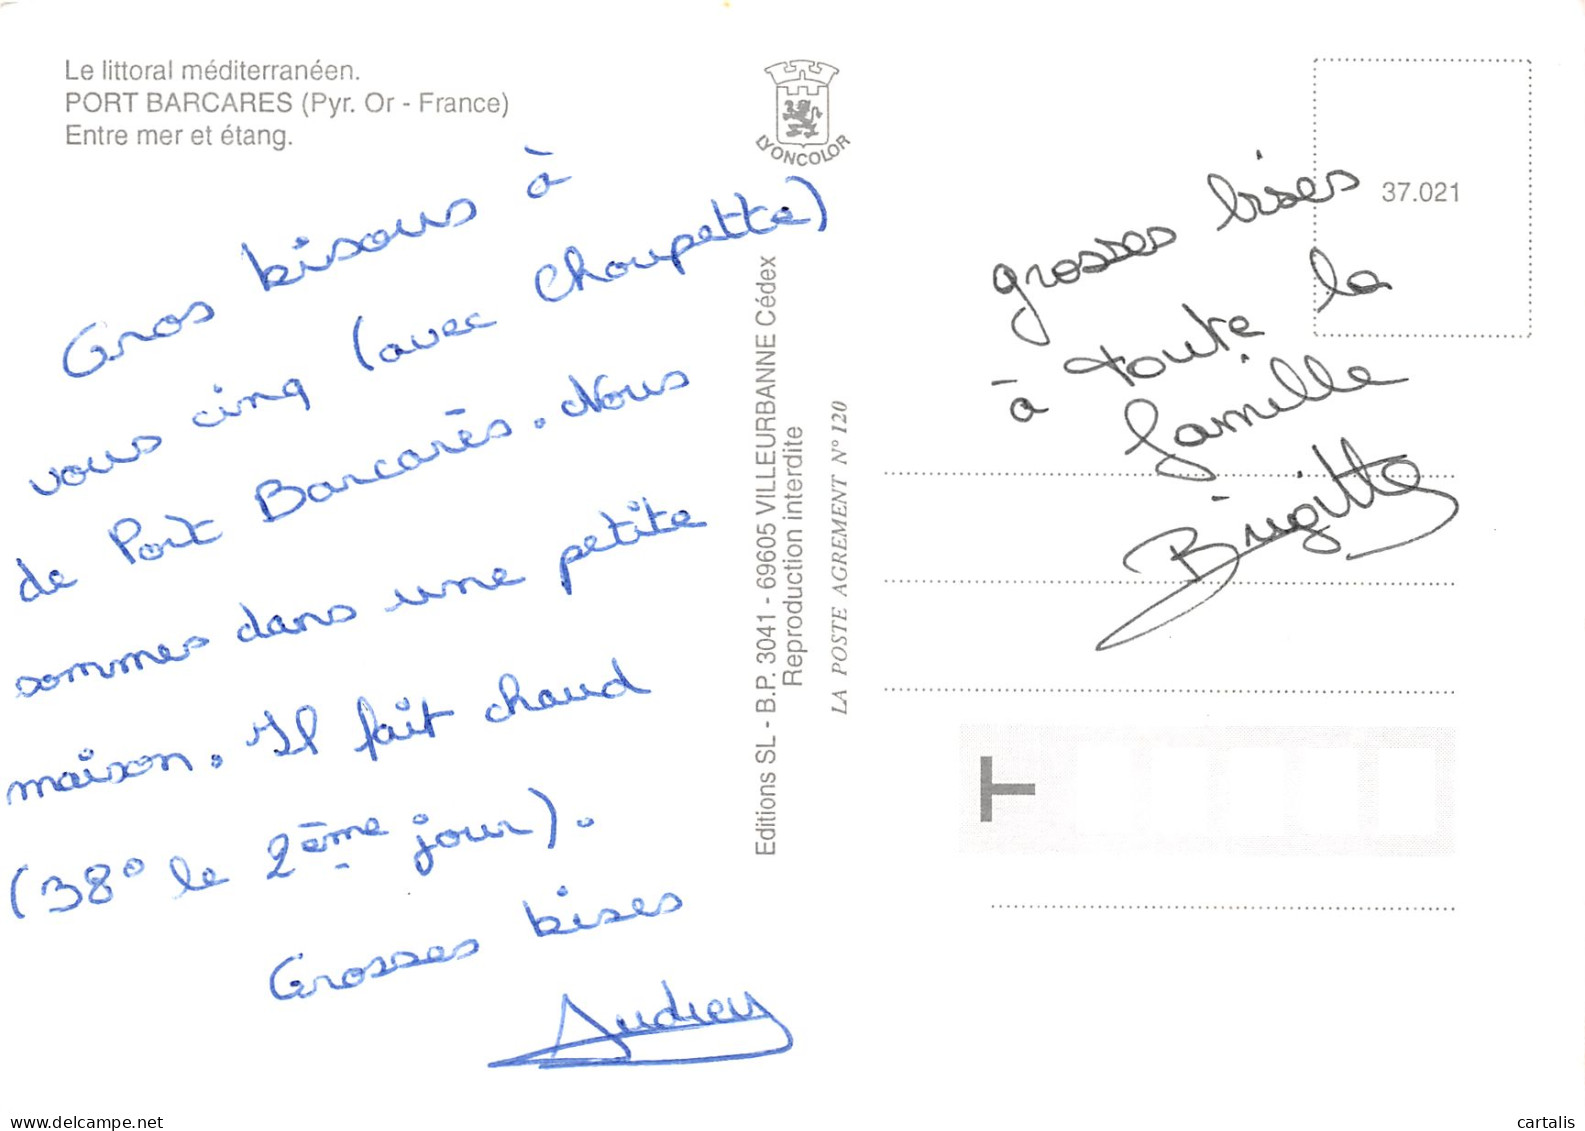 Le littoral méditerranéen.
PORT BARCARES (Pyr. Or - France)
Entre mer et étang.
Gros bisous à
vous cinq (avec Choupette)
de Port Barcarès. Nous
sommes dans une petite
maison. Il fait chaud
(38° le 2ème jour).
Grosses bises
Audrey
LYONCOLOR
Editions SL - B.P. 3041 - 69605 VILLEURBANNE Cédex
Reproduction interdite
LA POSTE AGREMENT N° 120
37.021
grosses bises
à toute la
famille
Brigitte
T
www.delcampe.net
cartalis